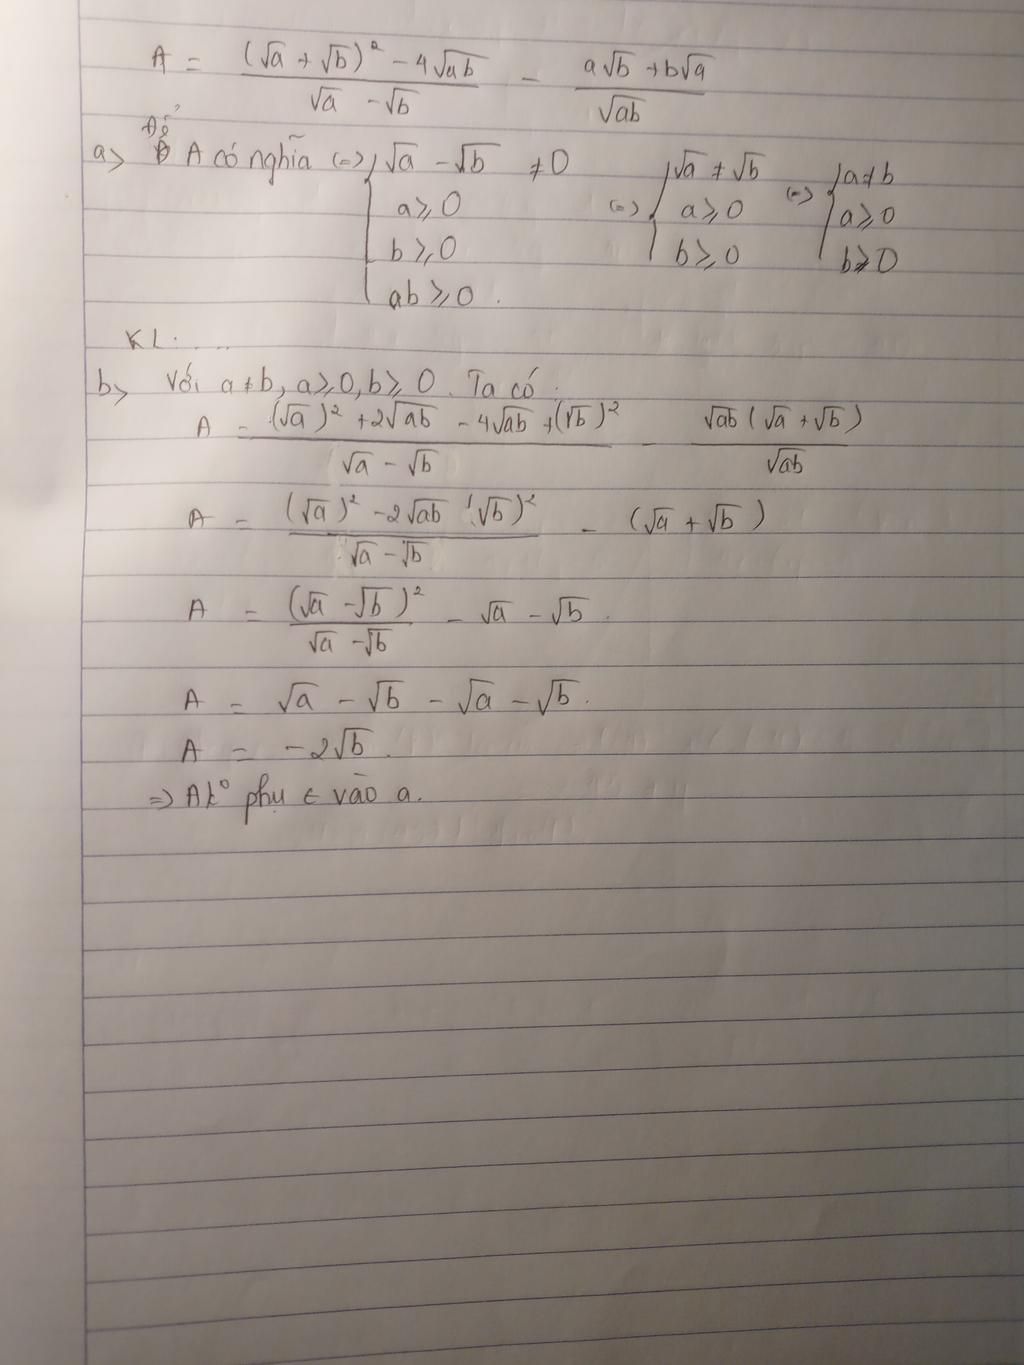 A = ((√a + √b)² - 4√ab)/(√a - √b) - (a√b + b√a)/√ab
a> Để A có nghĩa (=) { √a - √b ≠ 0 (=) { √a ≠ √b (=) { a ≠ b
a ≥ 0 a ≥ 0 a ≥ 0
b ≥ 0 b ≥ 0 b ≥ 0
ab ≥ 0.
KL.....
b> Với a ≠ b, a ≥ 0, b ≥ 0. Ta có:
A = ((√a)² + 2√ab - 4√ab + (√b)²)/(√a - √b) - √ab(√a + √b)/√ab
A = ((√a)² - 2√ab (√b)²)/(√a - √b) - (√a + √b)
A = (√a - √b)²/(√a - √b) - √a - √b.
A = √a - √b - √a - √b.
A = -2√b.
=> A k° phụ ∈ vào a.